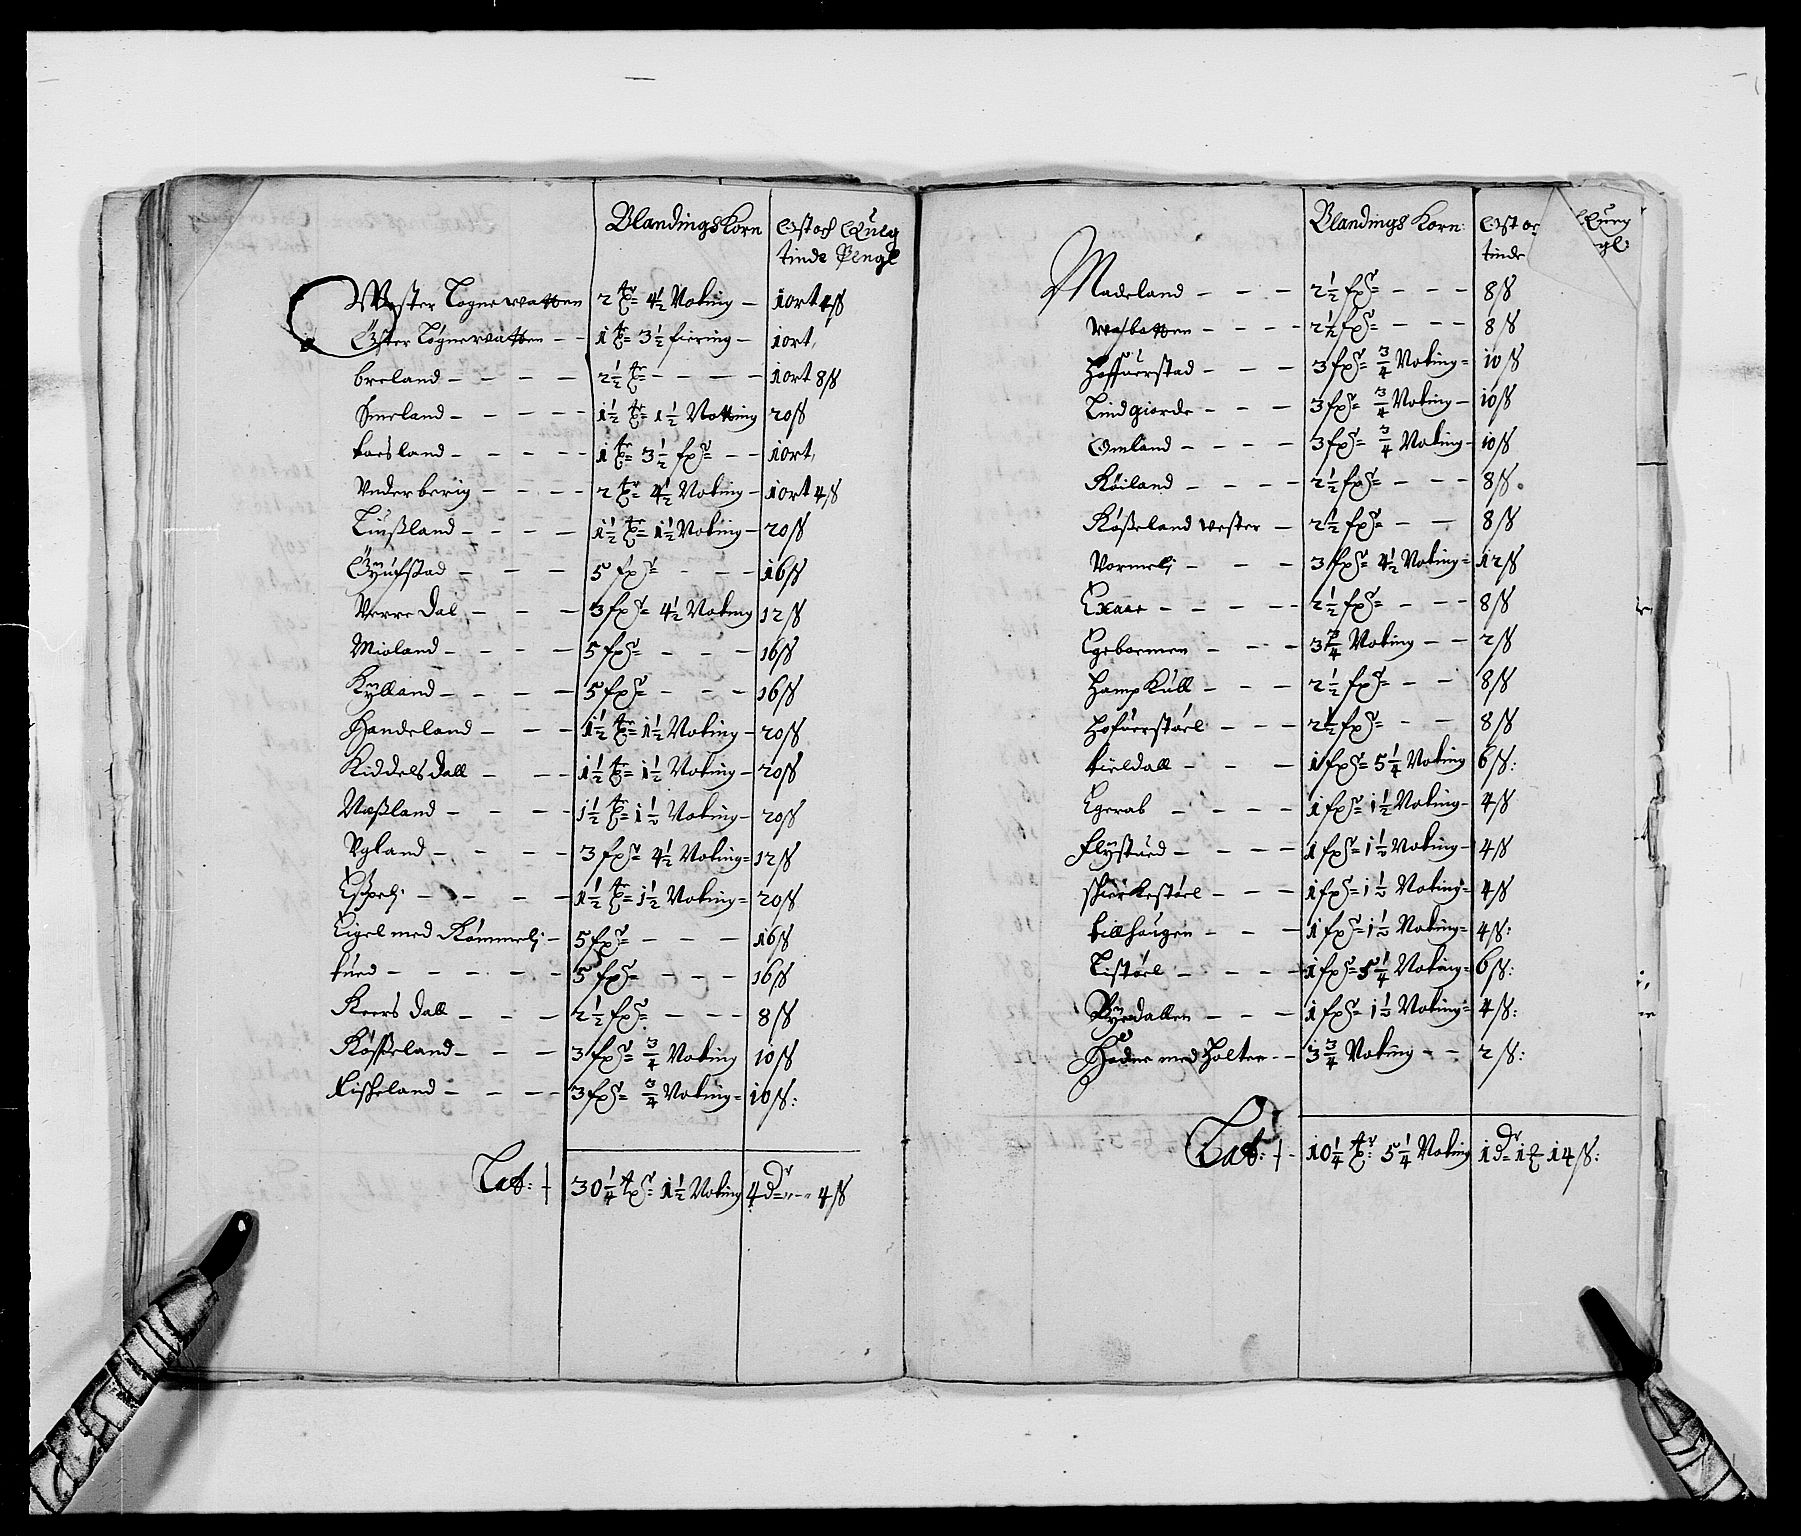 Blandings Korn Ost och Queg
tinde Penge
Wester Tognewatten 2 tr= 4½ Noting – 1ort 4ß
Öster Tognewatten – – 1 tr= 3½ fiering – 1ort,
breland – – – – 2½ tr= – – – – 1ort 8ß
Smeland – – – – – 1½ tr= 1½ Notting 20ß
land – – – – – 1 tr= 3½ fxr= – – 1ort,
Vnderberig – – – – 2 tr= 4½ Noting – 1ort 4ß
Liußland – – – – 1½ tr= 1½ Noting – 20ß
– – – 5 fxr= – – – 16ß
Verre Dal – – – 3 fxr= 4½ Noting 12ß
Mioland – – – – 5 fxr= – – – 16ß
Kÿlland – – – – 5 fxr= – – – 16ß
Handeland – – – 1½ tr= 1½ Noting – 20ß
Kiddels Dall – – – 1½ tr= 1½ Noting – 20ß
Naßland – – – – 1½ tr= 1½ Noting – 20ß
Vgland – – – – 3 fxr= 4½ Noting = 12ß
Espelj – – – – 1½ tr= 1½ Noting = 20ß
Eigel med Römmelj – 5 fxr= – – – 16ß
tued – – – – – 5 fxr= – – – 16ß
Keers Dall – – – 2½ fxr= – – – 8ß
Rösseland – – – 3 fxr= ¾ Noting 10ß
Fiskeland – – – – 3 fxr= ¾ Noting = 10ß:
Lat: 30¼ tr= 1½ Noting 4 dr= „ – „ 4ß
Blandings Korn: Ost oc Queg
tinde gl
Madeland – – – 2½ fxr= – – – 8ß
– – – – 2½ fxr= – – – 8ß
Hoffuerstad – – – 3 fxr= ¾ Noting = 10ß
Lindgiorde – – – 3 fxr= ¾ Noting – 10ß
Omland – – – – 3 fxr= ¾ Noting – 10ß
Röiland – – – – 2½ fxr= – – – 8ß.
Rößeland Vester – 2½ fxr= – – 8ß
Vormelj – – – 3 fxr= 4½ Noting = 12ß
Exaae – – – – 2½ fxr= – – – 8ß
Egeboemen – – – 3¾ Noting – – 2ß
HampKull – – – 2½ fxr= – – 8ß
Hofuerstöel – – – 2½ fxr= – – 8ß
kieldall – – – 1 fxr= 5¼ Noting 6ß:
Egerab – – – – 1 fxr= 1½ Noting – 4ß
Flÿstued – – – – 1 fxr= 1½ Noting – 4ß
skierkestöel – – – 1 fxr= 1½ Noting = 4ß
tillhaugen – – – 1 fxr= 1½ Noting = 4ß:
Listöel – – – – 1 fxr= 5¼ Noting = 6ß:
Rÿedallen – – – 1 fxr= 1½ Noting = 4ß:
Hodne med Holter – – 3¾ Noting – – 2ß:
Lat: 10¼ tr= 5¼ Noting 1 dr= 1 14ß: